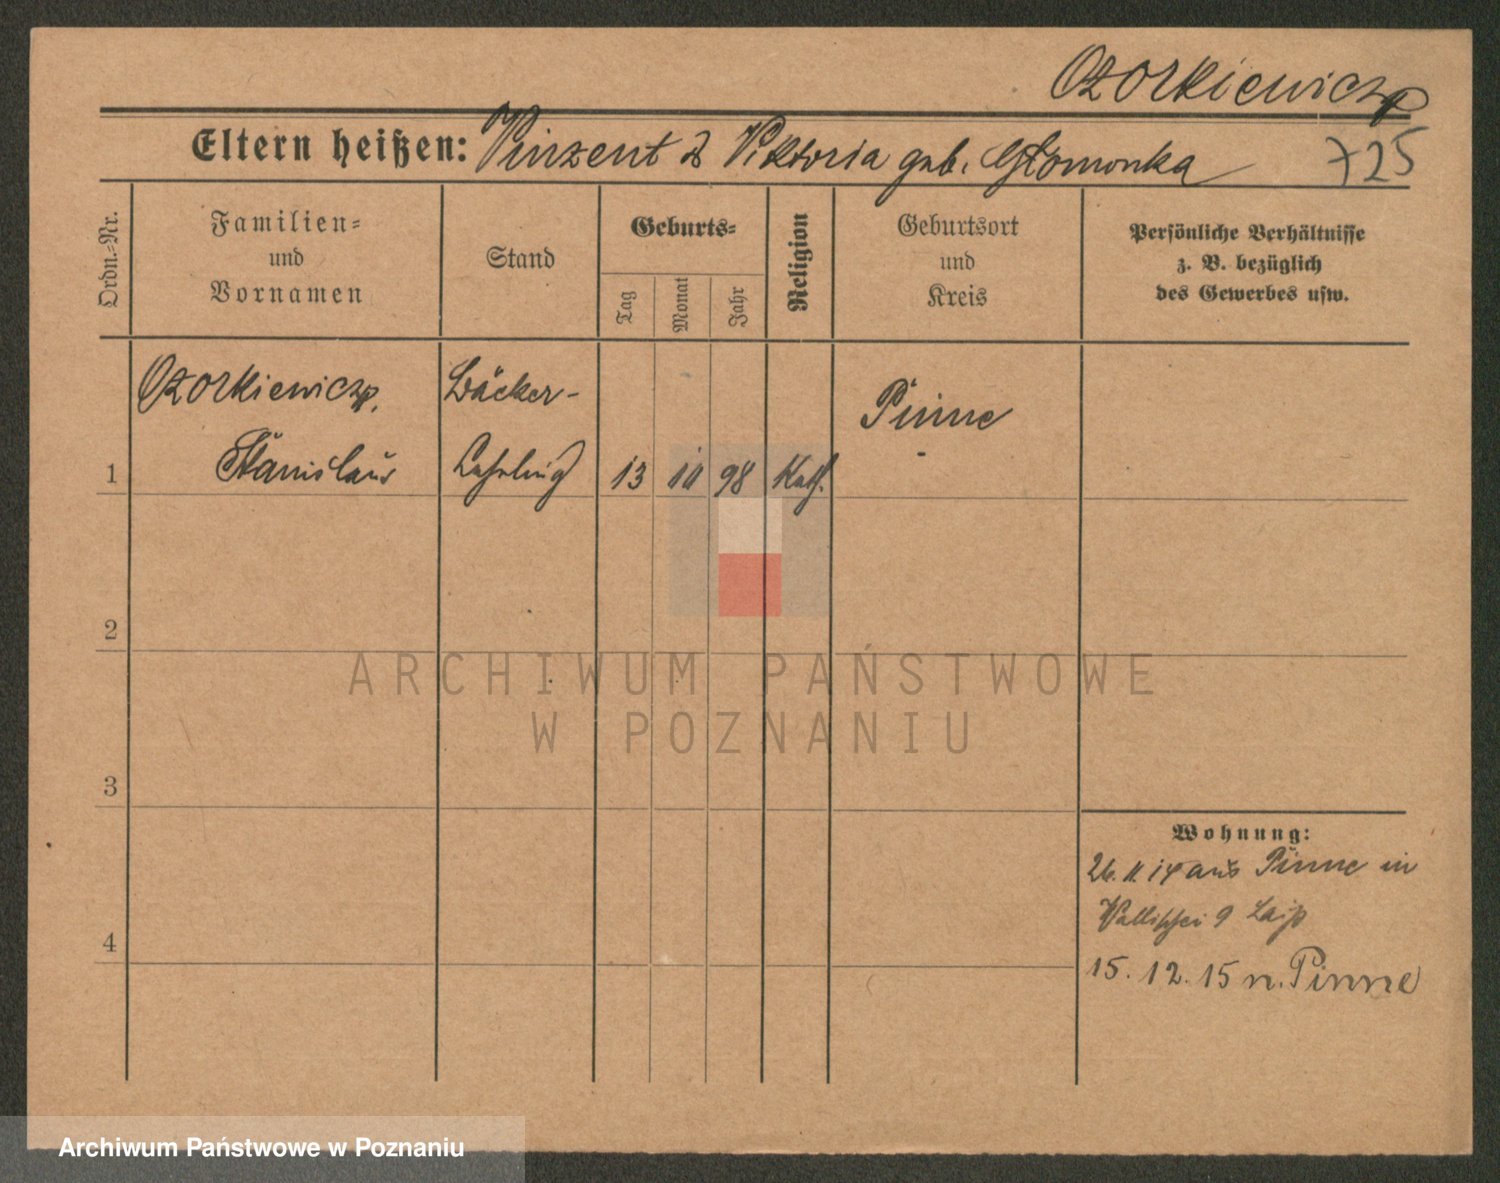 Ozorkiewicz
Eltern heißen: Vinzent & Viktoria geb. Głomonka 725
Ordn.=Nr.
Familien=
und
Vornamen
Stand
Geburts=
Tag
Monat
Jahr
Religion
Geburtsort
und
Kreis
Persönliche Verhältnisse
z. B. bezüglich
des Gewerbes usw.
Ozorkiewicz, Bäcker-
Pinne
1 Stanislaus Lehrling 13 10 98 Kath.
2
ARCHIWUM PAŃSTWOWE
W POZNANIU
3
Wohnung:
26. 11. 14 aus Pinne in
Wallischei 9
4
15. 12. 15 n. Pinne
Archiwum Państwowe w Poznaniu